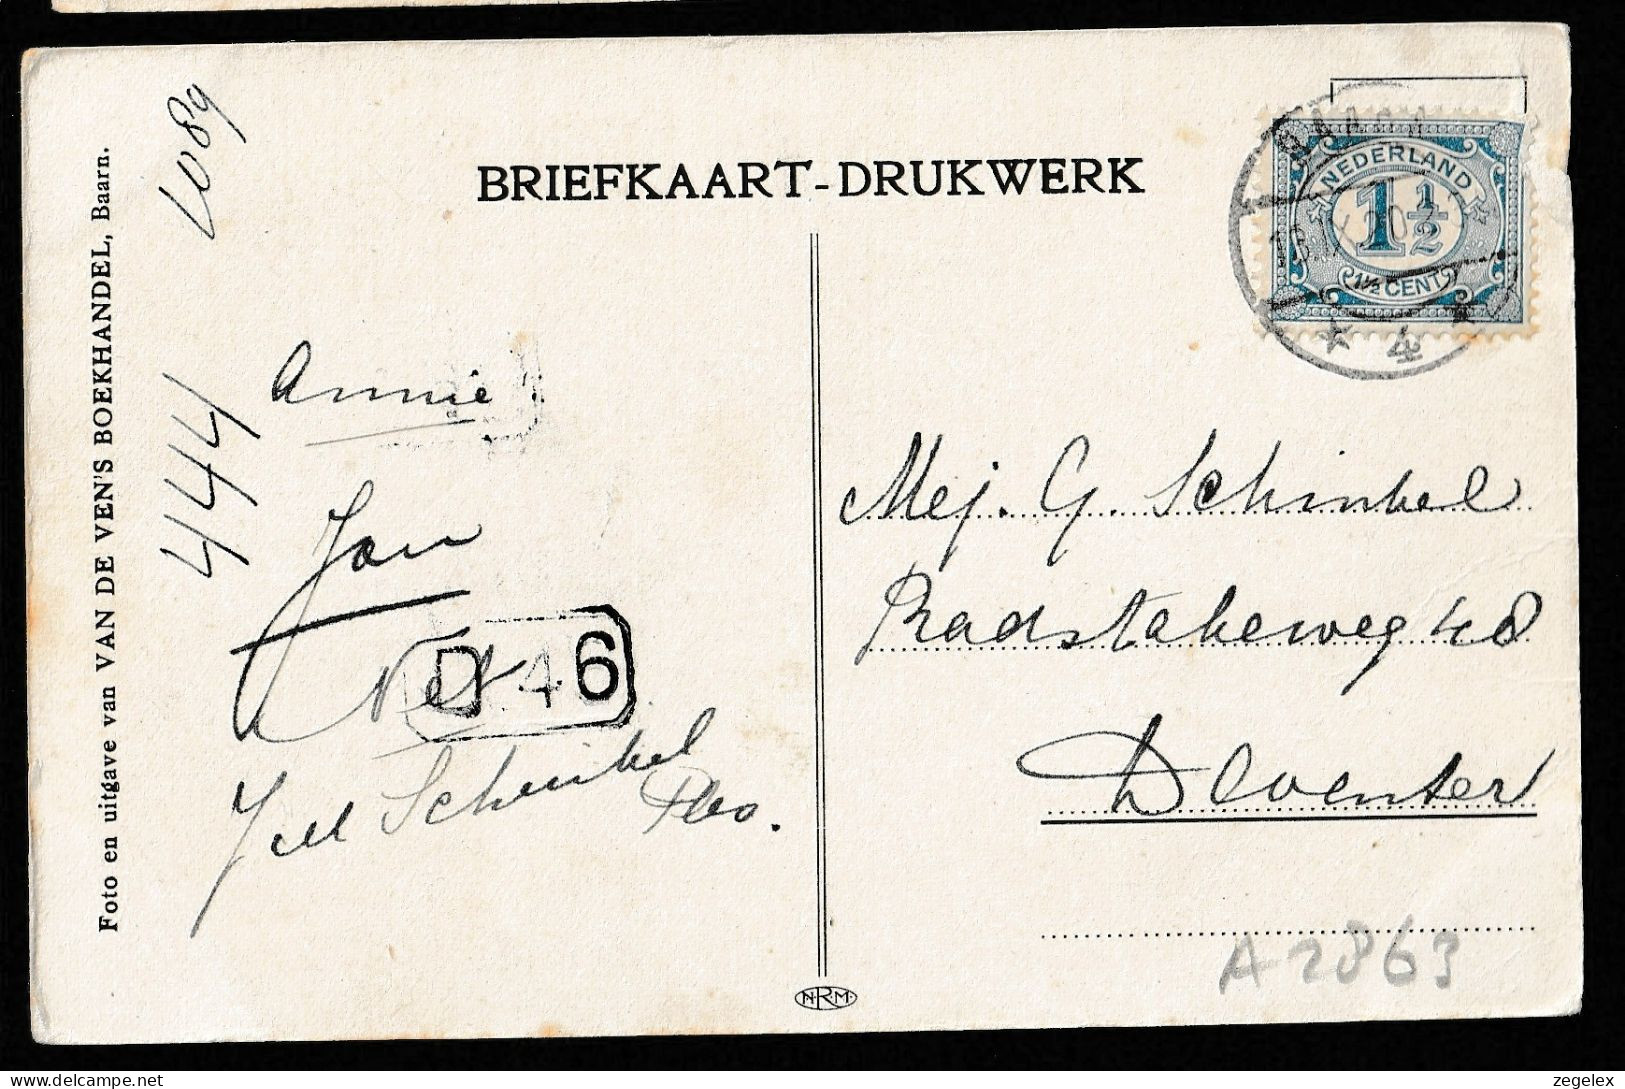 BRIEFKAART-DRUKWERK
Foto en uitgave van VAN DE VEN'S BOEKHANDEL, Baarn.
L089
444
BAARN
NEDERLAND
1½
1½ CENT
4
Annie
Jan
D 46
Schinkel
Mej. G. Schinkel
Radstakeweg 48
Deventer
A2863
N.R.M.
zegelex
delcampe.net